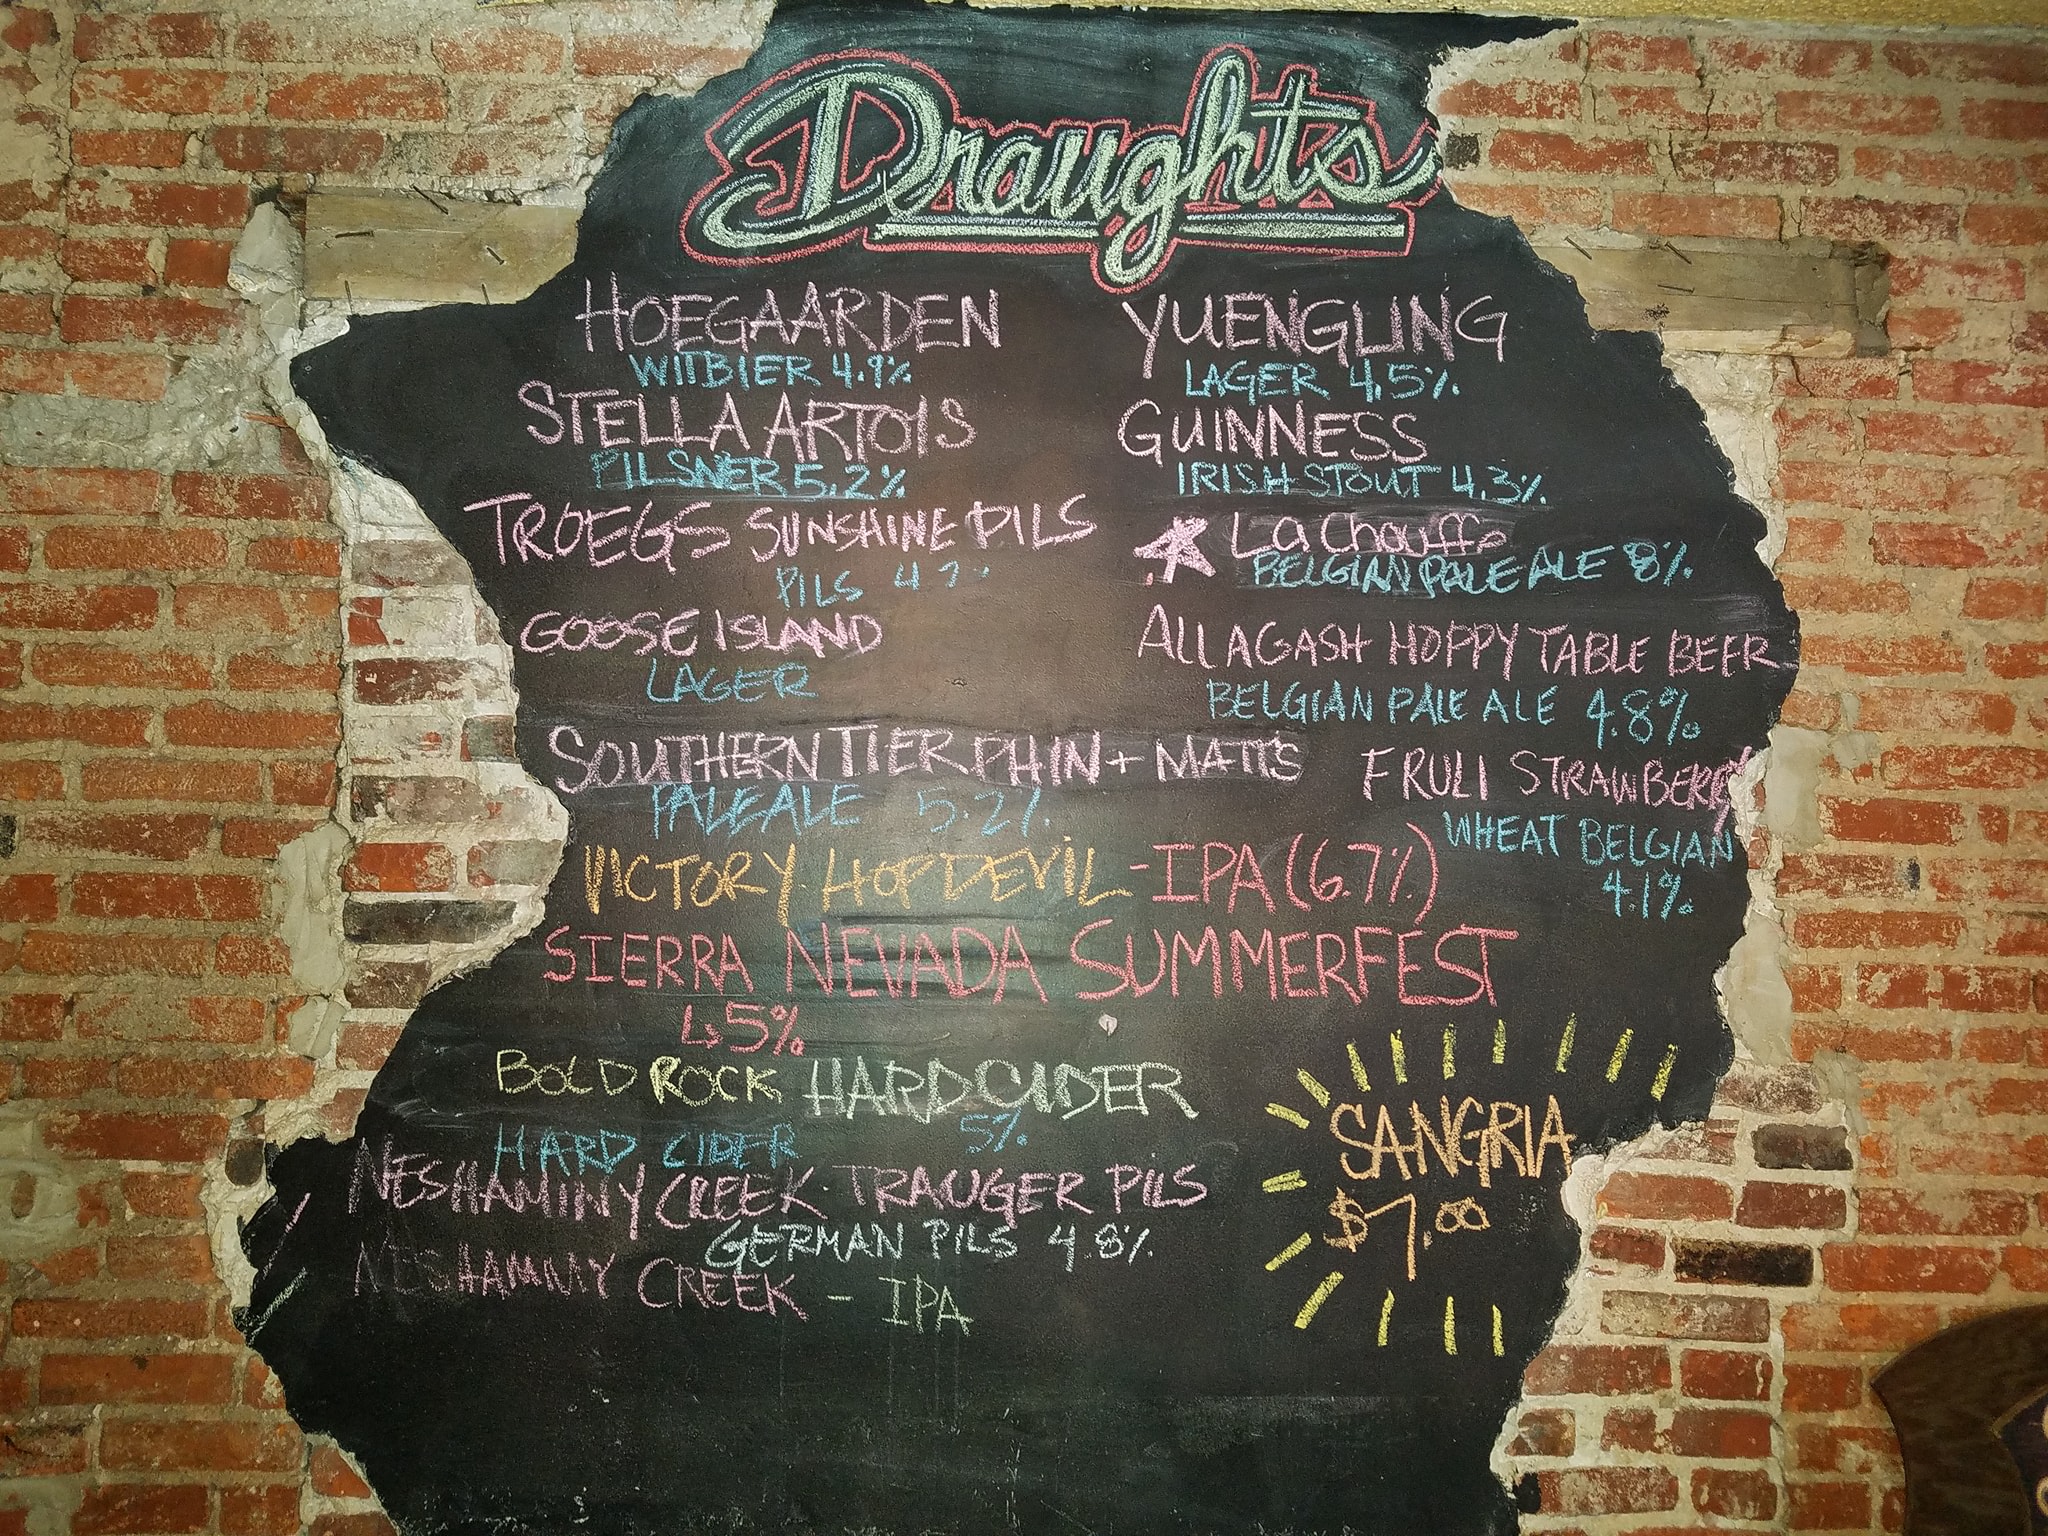 Draughts
HOEGAARDEN
WITBIER 4.9%
STELLA ARTOIS
PILSNER 5.2%
TROEGS SUNSHINE PILS
PILS
GOOSE ISLAND
LAGER
SOUTHERN TIER PHIN + MATTS
PALE ALE 5.2%
YUENGLING
LAGER 4.5%
GUINNESS
IRISH STOUT 4.3%
La Chouffe
BELGIAN PALE ALE 8%
ALLAGASH HOPPY TABLE BEER
BELGIAN PALE ALE 4.8%
FRULI STRAWBERRY
WHEAT BELGIAN
4.1%
VICTORY HOPDEVIL - IPA (6.7%)
SIERRA NEVADA SUMMERFEST
↳ 5%
BOLD ROCK HARD CIDER
HARD CIDER 5%
NESHAMINY CREEK - TRAUGER PILS
GERMAN PILS 4.8%
NESHAMINY CREEK - IPA
SANGRIA
$7.00